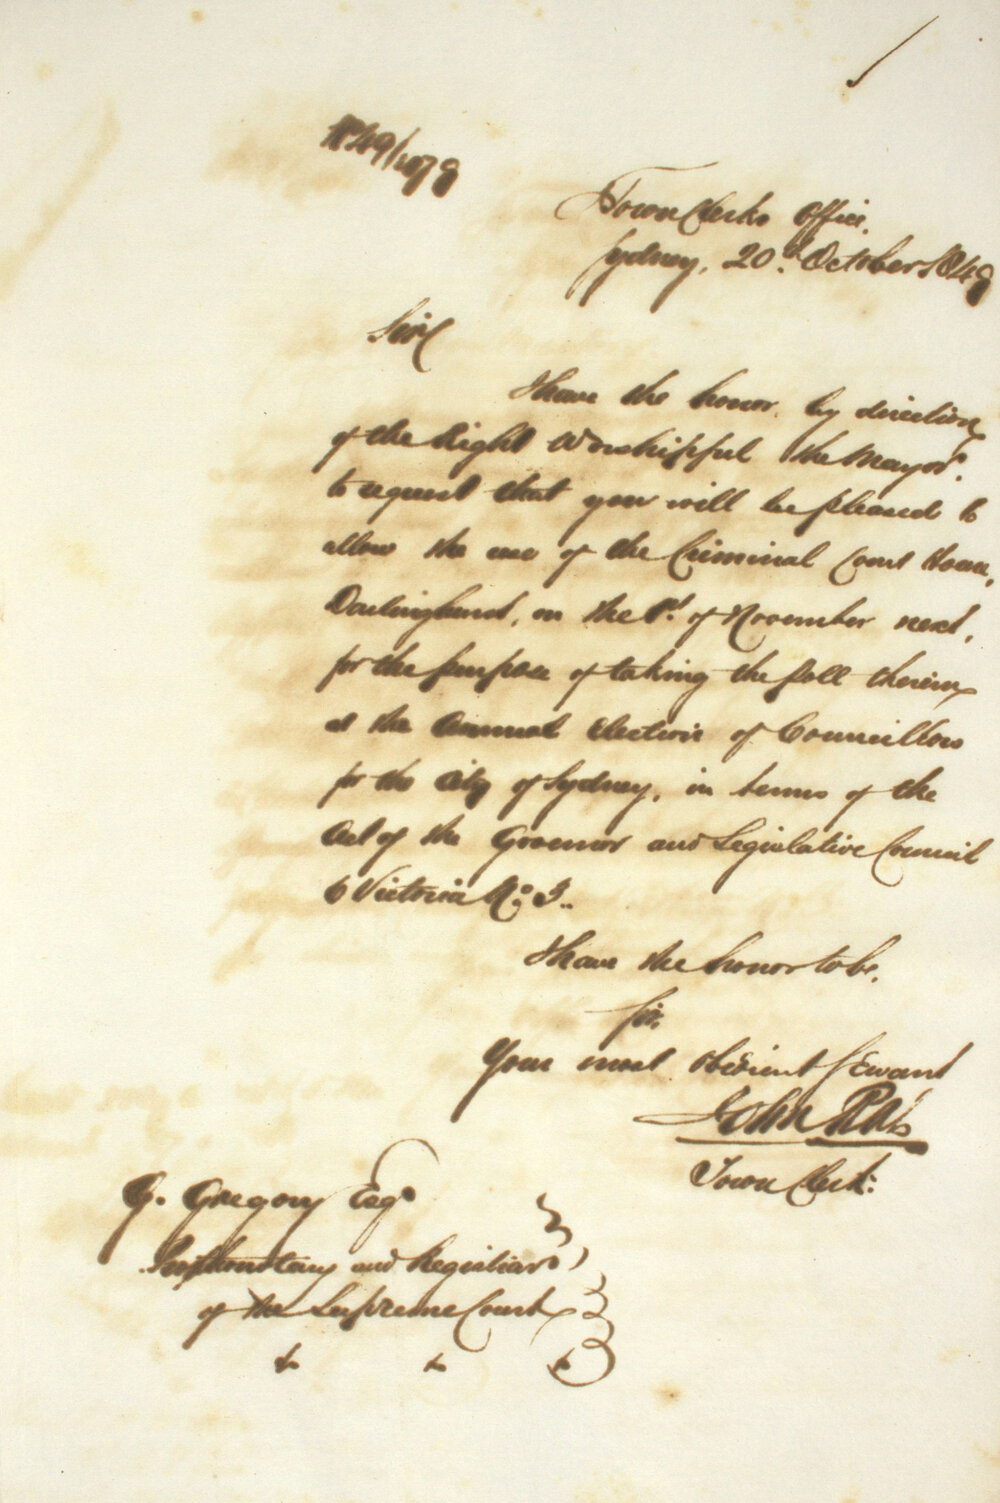 49/1078
Town Clerks Office,
Sydney, 20th October 1849
Sir
I have the honor by direction
of the Right Worshipful the Mayor,
to request that you will be pleased to
allow the use of the Criminal Court House,
Darlinghurst, on the 1st of November next,
for the purpose of taking the Poll therein
at the Annual Election of Councillors
for the City of Sydney, in terms of the
Act of the Governor and Legislative Council
6 Victoria No. 3..
I have the honor to be,
Sir,
Your most obedient Servant
John Rae
Town Clerk:
G. Gregory Esqr
Prothonotary and Registrar
of the Supreme Court
&c &c &c